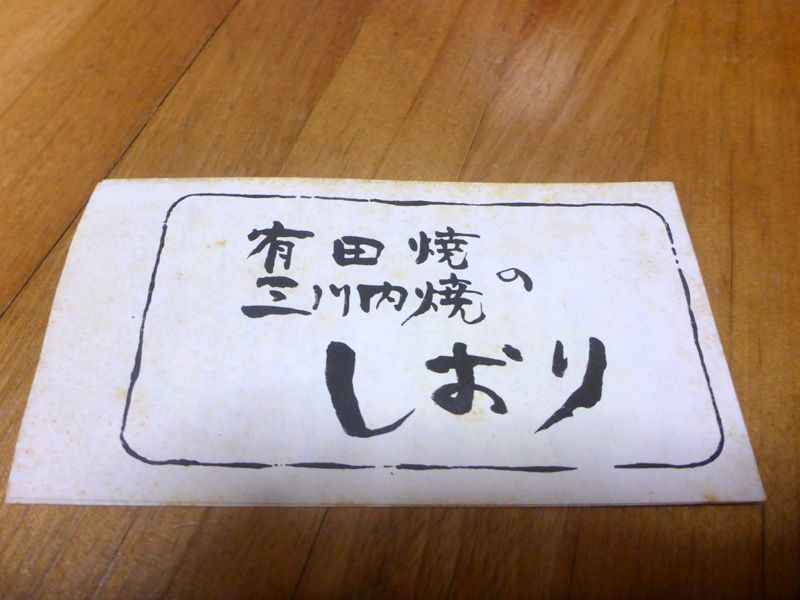 有田焼
三川内焼の
しおり